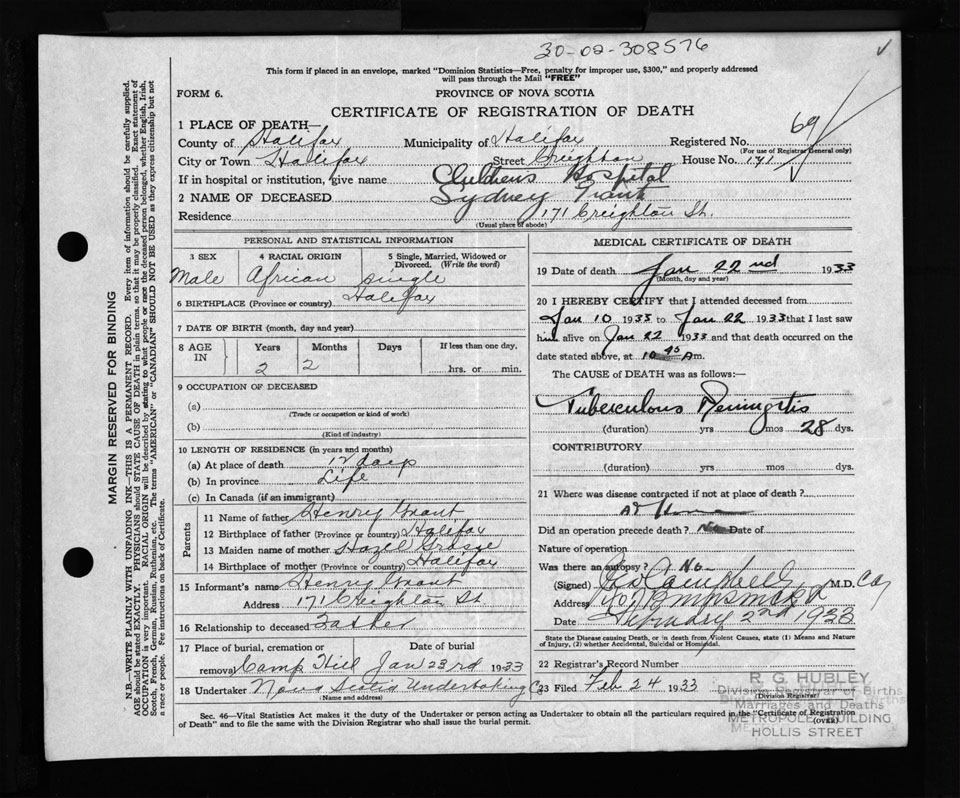 30-02-308576
This form if placed in an envelope, marked "Dominion Statistics—Free, penalty for improper use, $300," and properly addressed
will pass through the Mail "FREE"
FORM 6.
PROVINCE OF NOVA SCOTIA
CERTIFICATE OF REGISTRATION OF DEATH
1 PLACE OF DEATH—
County of Halifax Municipality of Halifax Registered No. 69
(For use of Registrar General only)
City or Town Halifax Street Creighton House No. 171
If in hospital or institution, give name Children's Hospital
2 NAME OF DECEASED Sydney Grant
Residence 171 Creighton St.
(Usual place of abode)
MARGIN RESERVED FOR BINDING
N.B.—WRITE PLAINLY WITH UNFADING INK—THIS IS A PERMANENT RECORD. Every item of information should be carefully supplied.
AGE should be stated EXACTLY. PHYSICIANS should STATE CAUSE OF DEATH in plain terms, so that it may be properly classified. Exact statement of
OCCUPATION is very important. RACIAL ORIGIN will be described by stating to what people or race the deceased person belonged, whether English, Irish,
Scotch, French, German, Russian, Ruthenian, etc. The terms "AMERICAN" or "CANADIAN" SHOULD NOT BE USED as they express citizenship but not
a race or people. See instructions on back of Certificate.
PERSONAL AND STATISTICAL INFORMATION
3 SEX 4 RACIAL ORIGIN 5 Single, Married, Widowed or
Divorced. (Write the word)
Male African single
6 BIRTHPLACE (Province or country) Halifax
7 DATE OF BIRTH (month, day and year)
8 AGE IN Years Months Days If less than one day.
2 2 hrs. or min.
9 OCCUPATION OF DECEASED
(a)
(Trade or occupation or kind of work)
(b)
(Kind of industry)
10 LENGTH OF RESIDENCE (in years and months)
(a) At place of death 12 days
(b) In province Life
(c) In Canada (if an immigrant)
Parents
11 Name of father Henry Grant
12 Birthplace of father (Province or country) Halifax
13 Maiden name of mother Hazel
14 Birthplace of mother (Province or country) Halifax
15 Informant's name Henry Grant
Address 171 Creighton St
16 Relationship to deceased Father
17 Place of burial, cremation or Date of burial
removal Camp Hill Jan 23rd 1933
18 Undertaker Nova Scotia Undertaking Co
(Name and address)
MEDICAL CERTIFICATE OF DEATH
19 Date of death Jan 22nd 1933
(Month, day and year)
20 I HEREBY CERTIFY that I attended deceased from
Jan 10 1933 to Jan 22 1933 that I last saw
him alive on Jan 22 1933 and that death occurred on the
date stated above, at 10 45 Am.
The CAUSE of DEATH was as follows:—
Tuberculous Meningitis
(duration) yrs mos 28 dys.
CONTRIBUTORY
(duration) yrs mos dys.
21 Where was disease contracted if not at place of death?
At Home
Did an operation precede death? No Date of
Nature of operation
Was there an autopsy? No
(Signed) Campbell M.D.
Address
Date February 2nd 1933
State the Disease causing Death, or in death from Violent Causes, state (1) Means and Nature
of Injury, (2) whether Accidental, Suicidal or Homicidal.
22 Registrar's Record Number
23 Filed Feb 24 1933
(Division Registrar)
R. G. HUBLEY
Division Registrar of Births
Marriages and Deaths
METROPOLE BUILDING
HOLLIS STREET
Sec. 46—Vital Statistics Act makes it the duty of the Undertaker or person acting as Undertaker to obtain all the particulars required in the "Certificate of Registration
of Death" and to file the same with the Division Registrar who shall issue the burial permit.
(OVER)